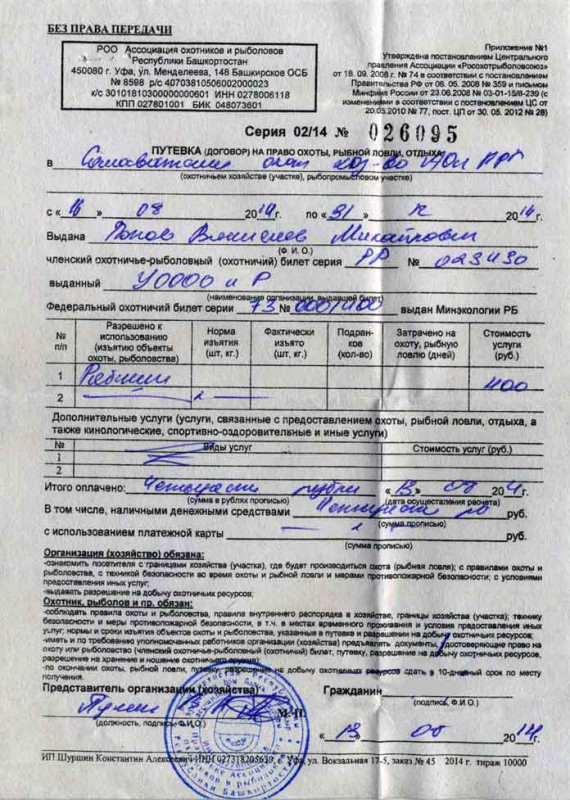 БЕЗ ПРАВА ПЕРЕДАЧИ
РОО Ассоциация охотников и рыболовов
Республики Башкортостан
450080 г. Уфа, ул. Менделеева, 148 Башкирское ОСБ
№ 8598 р/с 40703810506002000023
к/с 30101810300000000601 ИНН 0278006118
КПП 027801001 БИК 048073601
Приложение №1
Утверждена постановлением Центрального
правления Ассоциации «Росохотрыболовсоюз»
от 18. 09. 2008 г. № 74 в соответствии с постановлением
Правительства РФ от 06. 05. 2008 № 359 и письмом
Минфина России от 22.08.2008 № 03-01-15/8-239 (с
изменениями в соответствии с постановлением ЦС от
20.05.2010 № 77, пост. ЦП от 30. 05. 2012 № 28)
Серия 02/14 № 026095
ПУТЕВКА (ДОГОВОР) НА ПРАВО ОХОТЫ, РЫБНОЙ ЛОВЛИ, ОТДЫХА
в
(охотничьем хозяйстве (участке), рыбопромысловом участке)
с « » 08 2014г. по «31» 2014г.
Выдана Попов Вячеслав Михайлович
(Ф. И. О.)
членский охотничье-рыболовный (охотничий) билет серия РР № 023430
выданный УОООиР
(наименование организации, выдавшей билет)
Федеральный охотничий билет серии 73 № выдан Минэкологии РБ
№ п/п
Разрешено к использованию (изъятию объекты охоты, рыболовства)
Норма изъятия (шт, кг.)
Фактически изъято (шт, кг.)
Подранков (кол-во)
Затрачено на охоту, рыбную ловлю (дней)
Стоимость услуги (руб.)
1 Рябчик 400
2
Дополнительные услуги (услуги, связанные с предоставлением охоты, рыбной ловли, отдыха, а
также кинологические, спортивно-оздоровительные и иные услуги)
№ Виды услуг Стоимость услуг (руб.)
1
2
Итого оплачено: Четыреста рубли «13» 08 2014г.
(сумма в рублях прописью) (дата осуществления расчета)
В том числе, наличными денежными средствами Четыреста руб.
(сумма прописью)
с использованием платежной карты руб.
(сумма прописью)
Организация (хозяйство) обязана:
-ознакомить посетителя с границами хозяйства (участка), где будет производиться охота (рыбная ловля); с правилами охоты и
рыболовства, с техникой безопасности во время охоты и рыбной ловли и мерами противопожарной безопасности; с условиями
предоставления иных услуг;
-выдавать разрешение на добычу охотничьих ресурсов;
Охотник, рыболов и пр. обязан:
-соблюдать правила охоты и рыболовства, правила внутреннего распорядка в хозяйстве, границы хозяйства (участка); технику
безопасности и меры противопожарной безопасности, в т.ч. в местах временного проживания и условия предоставления иных
услуг; нормы и сроки изъятия объектов охоты и рыболовства, указанные в путевке и разрешении на добычу охотничьих ресурсов;
-иметь и по требованию уполномоченных работников организации (хозяйства) предъявлять документы, удостоверяющие право на
охоту или рыболовство (членский охотничье-рыболовный (охотничий) билет, путевку, разрешение на добычу охотничьих ресурсов,
разрешение на хранение и ношение охотничьего оружия);
-по окончании охоты, рыбной ловли, путевку, разрешение на добычу охотничьих ресурсов сдать в 10-дневный срок по месту
получения.
Представитель организации (хозяйства) Гражданин
(должность, подпись, Ф.И.О.) М.П. (подпись, Ф.И.О.)
«13» 08 2014г.
ИП Шуршин Константин Алексеевич ИНН г. Уфа, ул. Вокзальная 17-5, заказ № 45 2014 г. тираж 10000